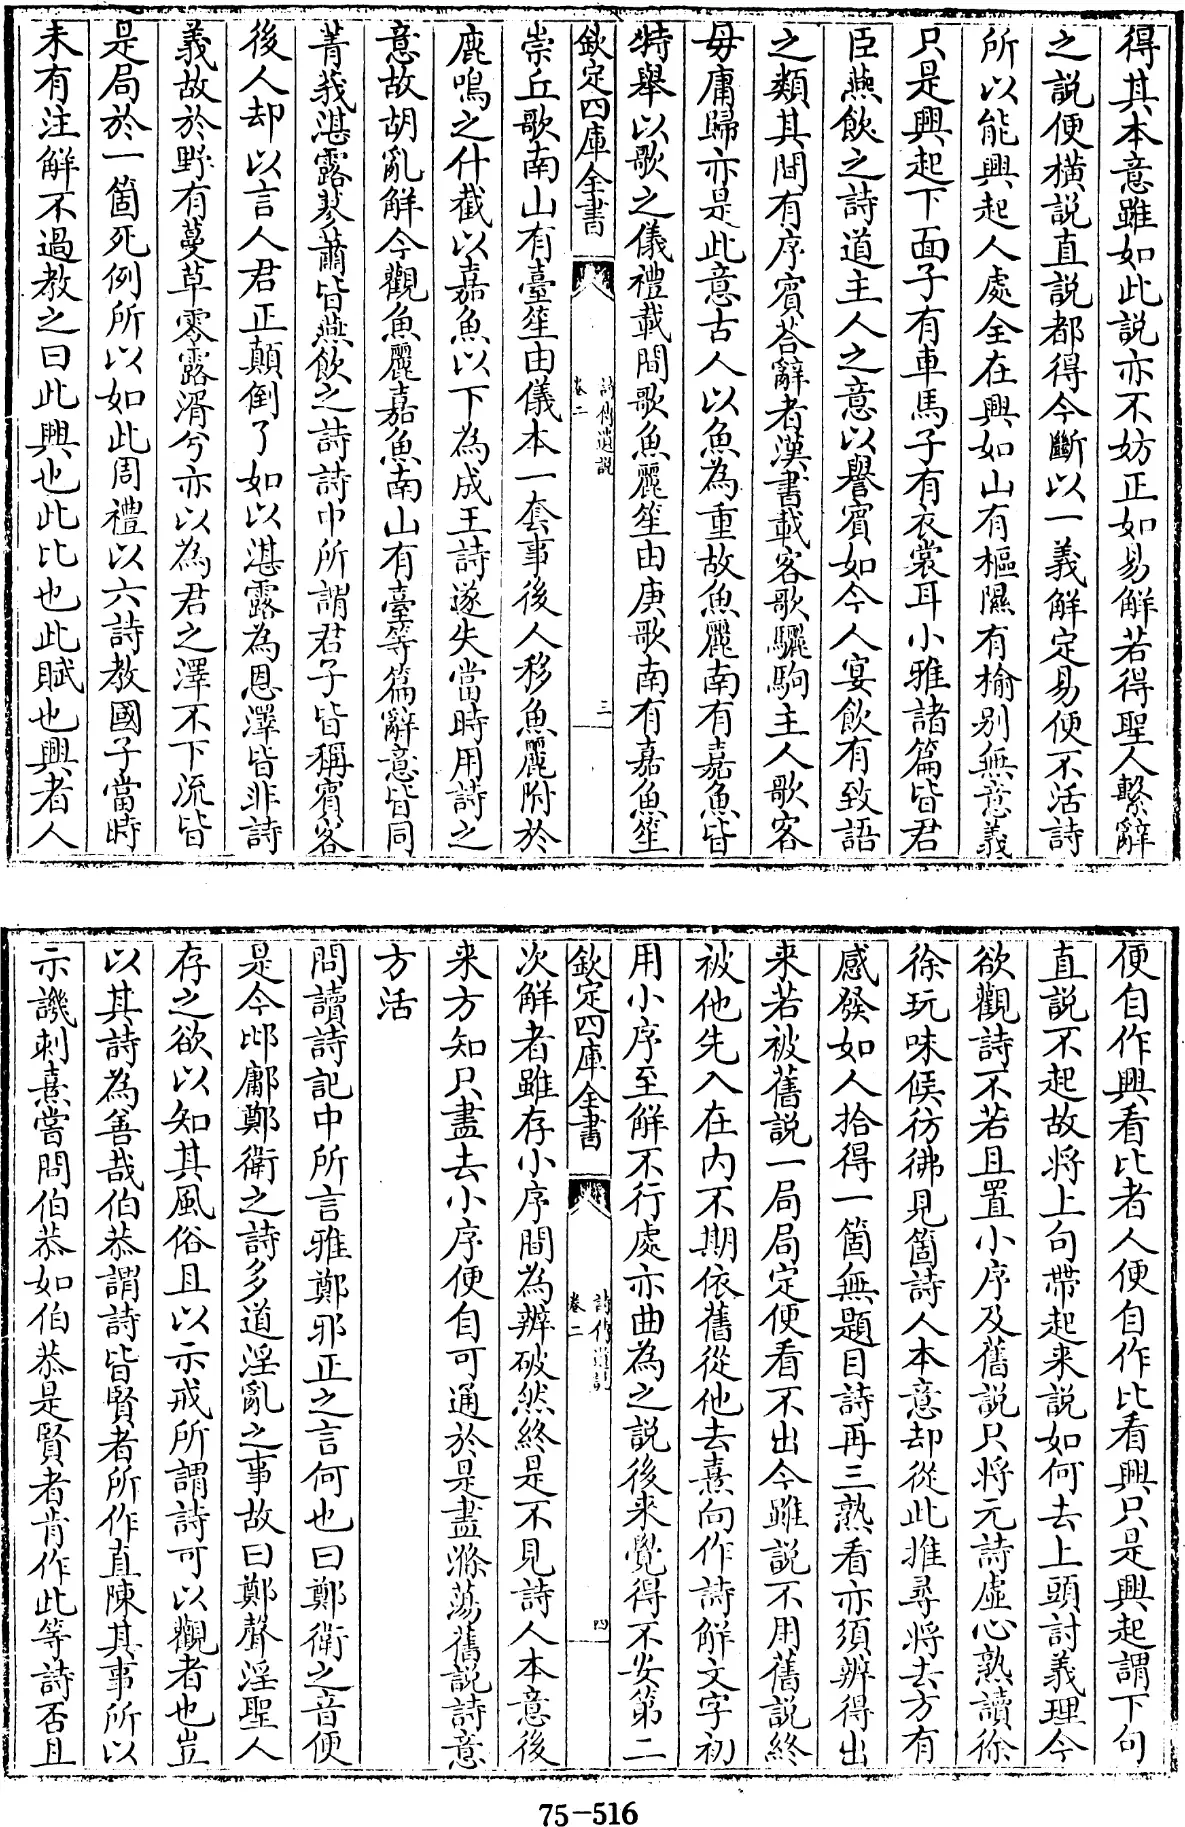 得其本意雖如此説亦不妨正如易解若得聖人繫辭
之説便橫説直説都得今斷以一義解定易便不活詩
所以能興起人處全在興如山有樞隰有榆别無意義
只是興起下面子有車馬子有衣裳耳小雅諸篇皆君
臣燕飲之詩道主人之意以譽賓如今人宴飲有致語
之類其間有序賓荅辭者漢書載客歌驪駒主人歌客
毋庸歸亦是此意古人以魚為重故魚麗南有嘉魚皆
特舉以歌之儀禮載間歌魚麗笙由庚歌南有嘉魚笙
欽定四庫全書
詩傳遺説
卷二
三
崇丘歌南山有臺笙由儀本一套事後人移魚麗附於
鹿鳴之什截以嘉魚以下為成王詩遂失當時用詩之
意故胡亂解今觀魚麗嘉魚南山有臺等篇辭意皆同
菁莪湛露蓼蕭皆燕飲之詩詩中所謂君子皆稱賓客
後人却以言人君正顛倒了如以湛露為恩澤皆非詩
義故於野有蔓草零露湑兮亦以為君之澤不下流皆
是局於一箇死例所以如此周禮以六詩教國子當時
未有注解不過教之曰此興也此比也此賦也興者人
便自作興看比者人便自作比看興只是興起謂下句
直説不起故將上句帶起来説如何去上頭討義理今
欲觀詩不若且置小序及舊説只將元詩虛心熟讀徐
徐玩味候彷彿見箇詩人本意却從此推尋將去方有
感發如人拾得一箇無題目詩再三熟看亦須辨得出
来若被舊説一局局定便看不出今雖説不用舊説終
被他先入在内不期依舊從他去熹向作詩解文字初
用小序至解不行處亦曲為之説後来覺得不安第二
欽定四庫全書
詩傳遺説
卷二
四
次解者雖存小序間為辨破然終是不見詩人本意後
来方知只盡去小序便自可通於是盡滌蕩舊説詩意
方活
問讀詩記中所言雅鄭邪正之言何也曰鄭衛之音便
是今邶鄘鄭衛之詩多道淫亂之事故曰鄭聲淫聖人
存之欲以知其風俗且以示戒所謂詩可以觀者也豈
以其詩為善哉伯恭謂詩皆賢者所作直陳其事所以
示譏刺熹嘗問伯恭如伯恭是賢者肯作此等詩否且
75-516